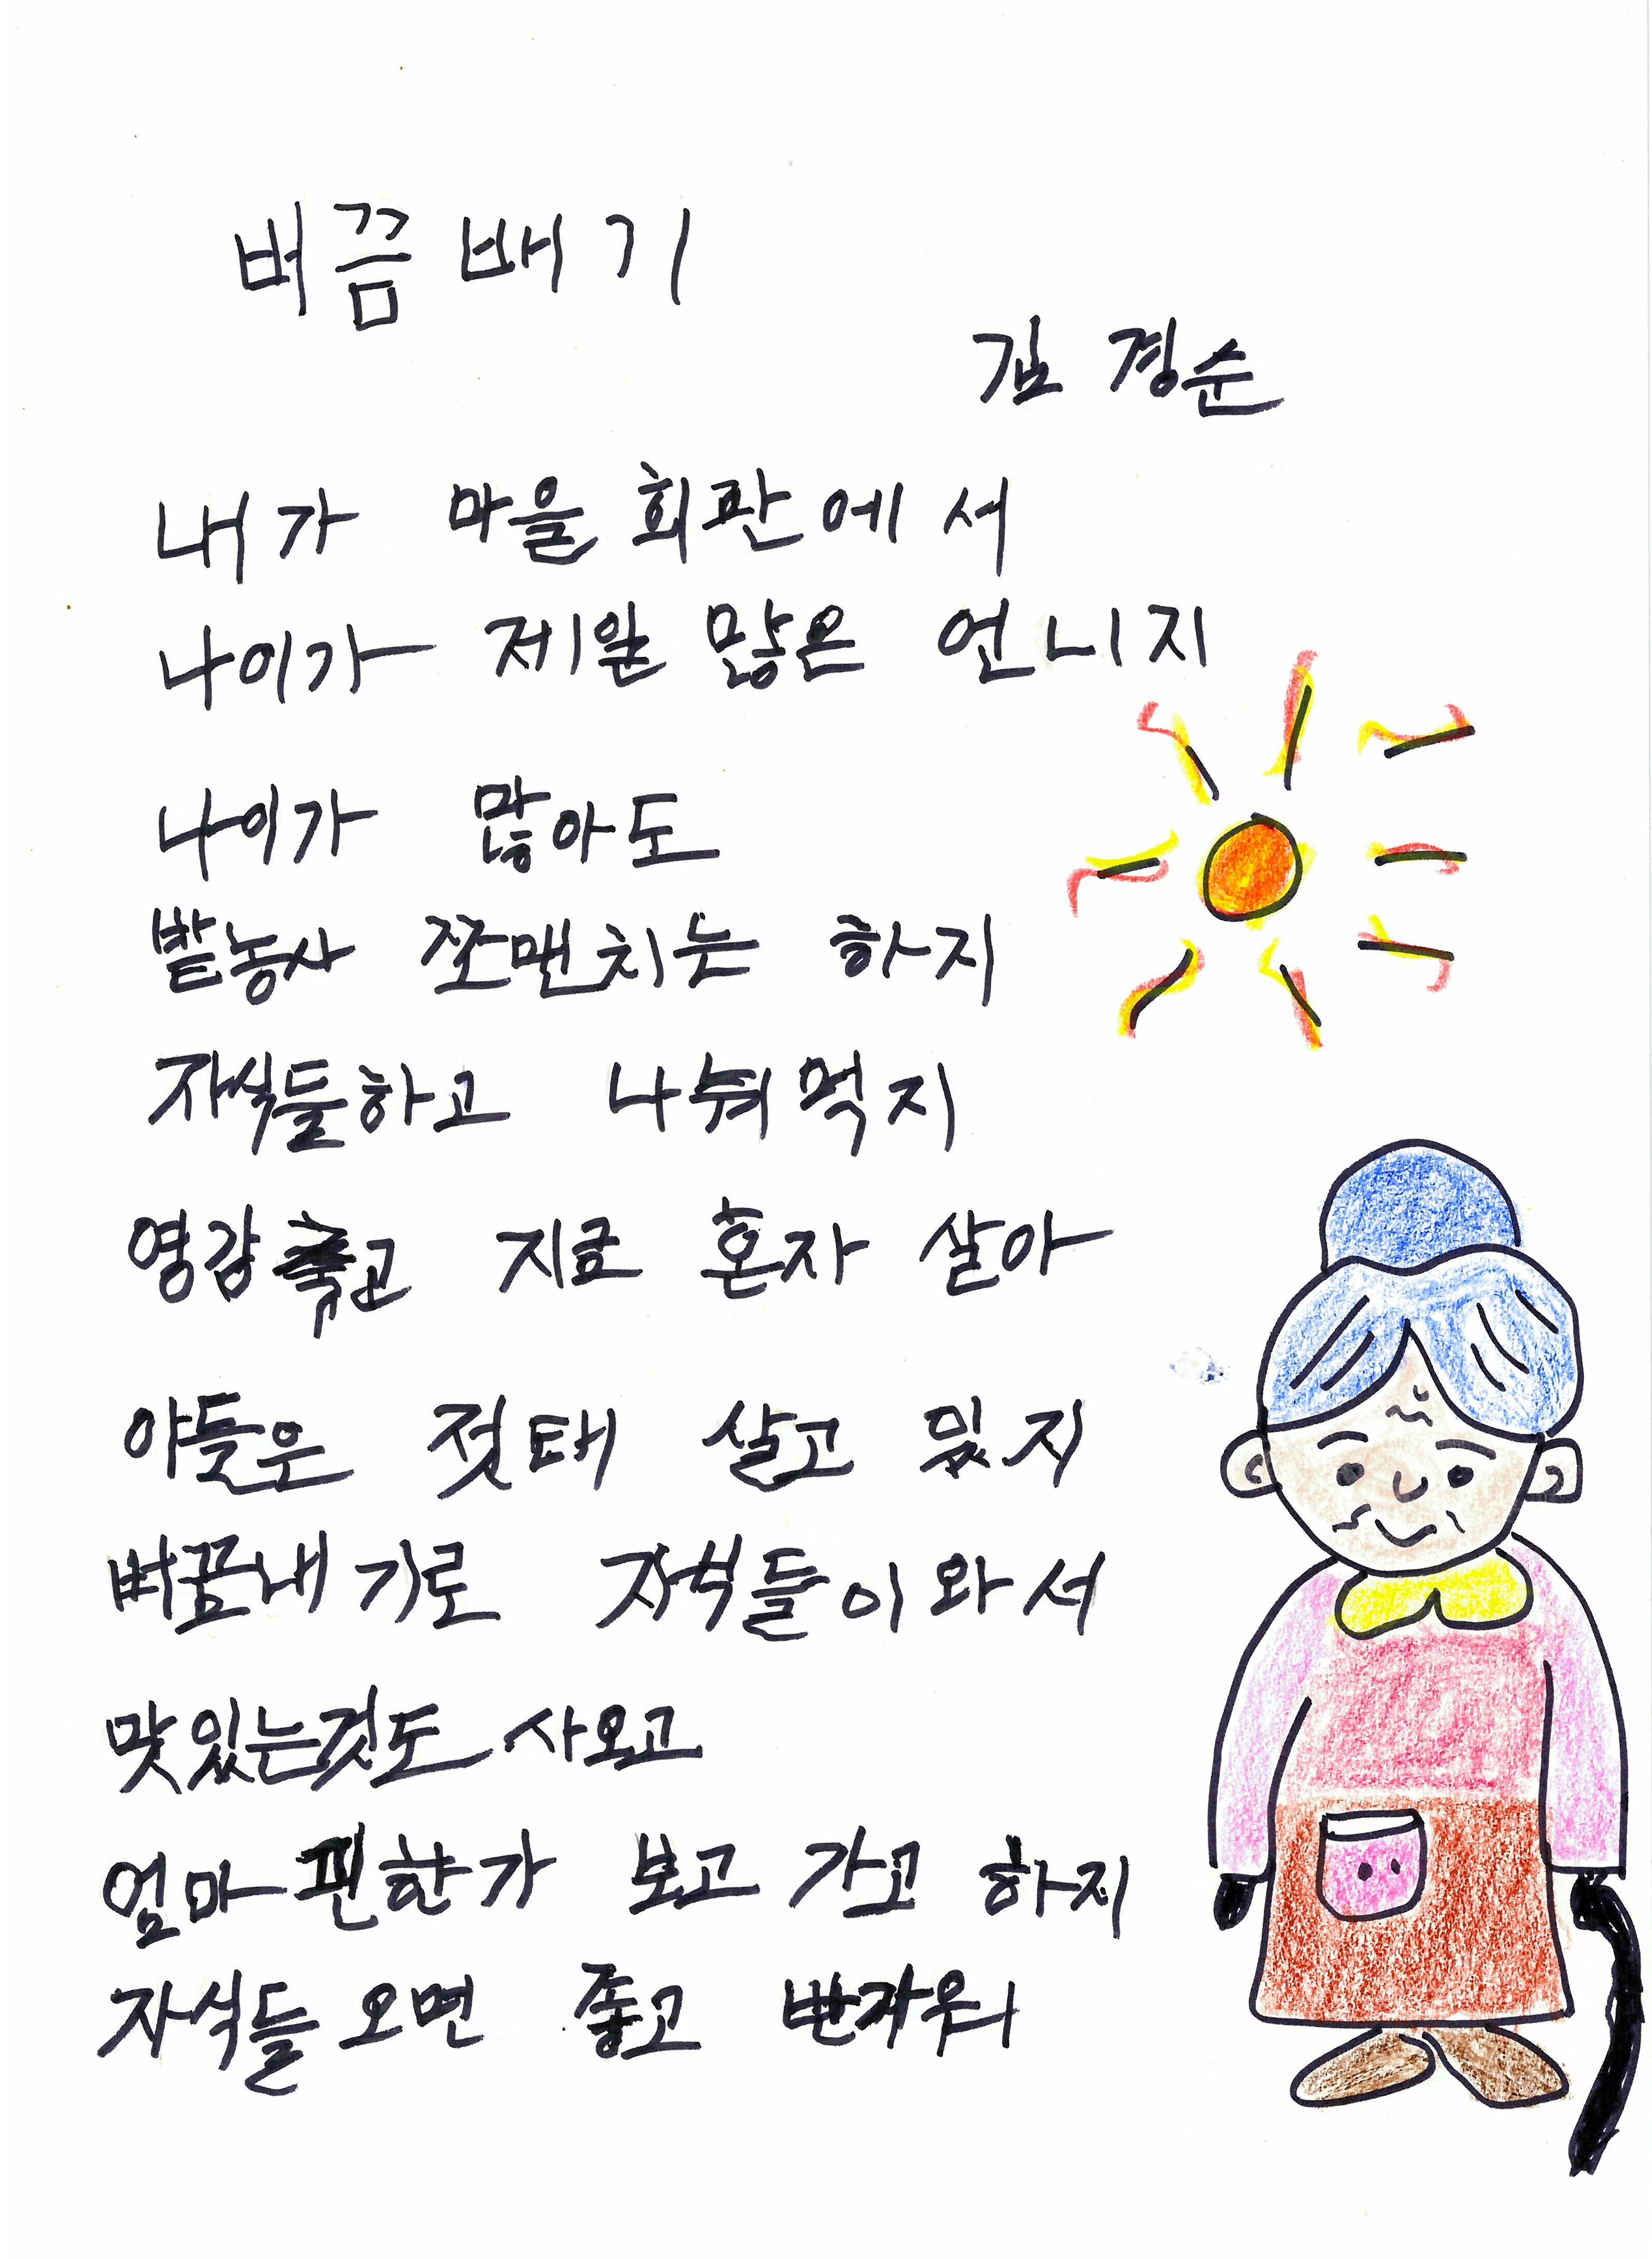 버끔배기
김경순
내가 마을 회관에서
나이가 제일 많은 언니지
나이가 많아도
밭농사 쪼맨치는 하지
자식들하고 나눠먹지
영감 죽고 지금 혼자 살아
아들은 젓태 살고 있지
버끔내기로 자식들이와서
맛있는것도 사오고
엄마 편한가 보고 가고 하지
자식들 오면 좋고 반가워